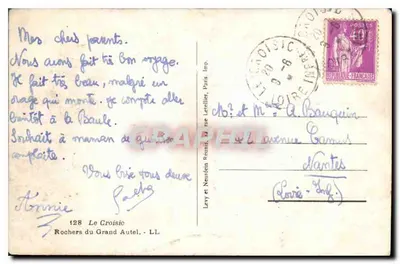 Mes chers parents.
Nous avons fait très bon voyage.
Il fait très beau, malgré un
orage qui monte. Je compte aller
bientôt à la Baule.
Souhait à maman de guérison
complète.
Vous bise tous deux
Annie
128 Le Croisic
Rochers du Grand Autel. - LL
Levy et Neurdein Réunis, rue Letellier, Paris. Imp.
LE CROISIC
LOIRE INFRE
20
6
Mr et Mme A. Bauquin
avenue Camus
Nantes
(Loire-Inf)